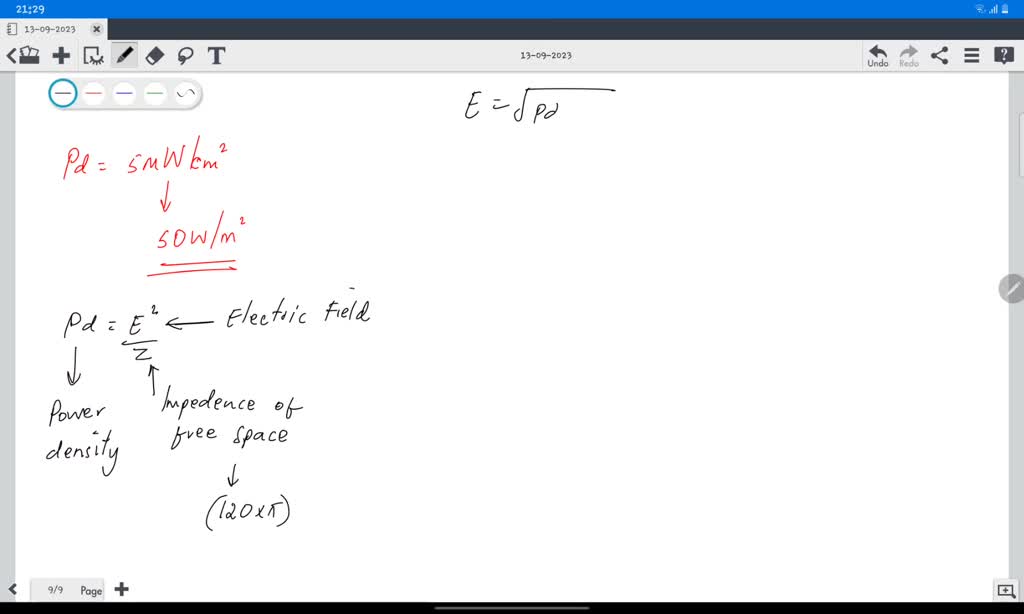 21:29
13-09-2023
T
13-09-2023
Undo
Redo
E = √Pd
Pd = 5mW/cm²
50W/m²
Pd = E²/Z ← Electric Field
Power density
Impedence of
free space
(120×π)
9/9 Page